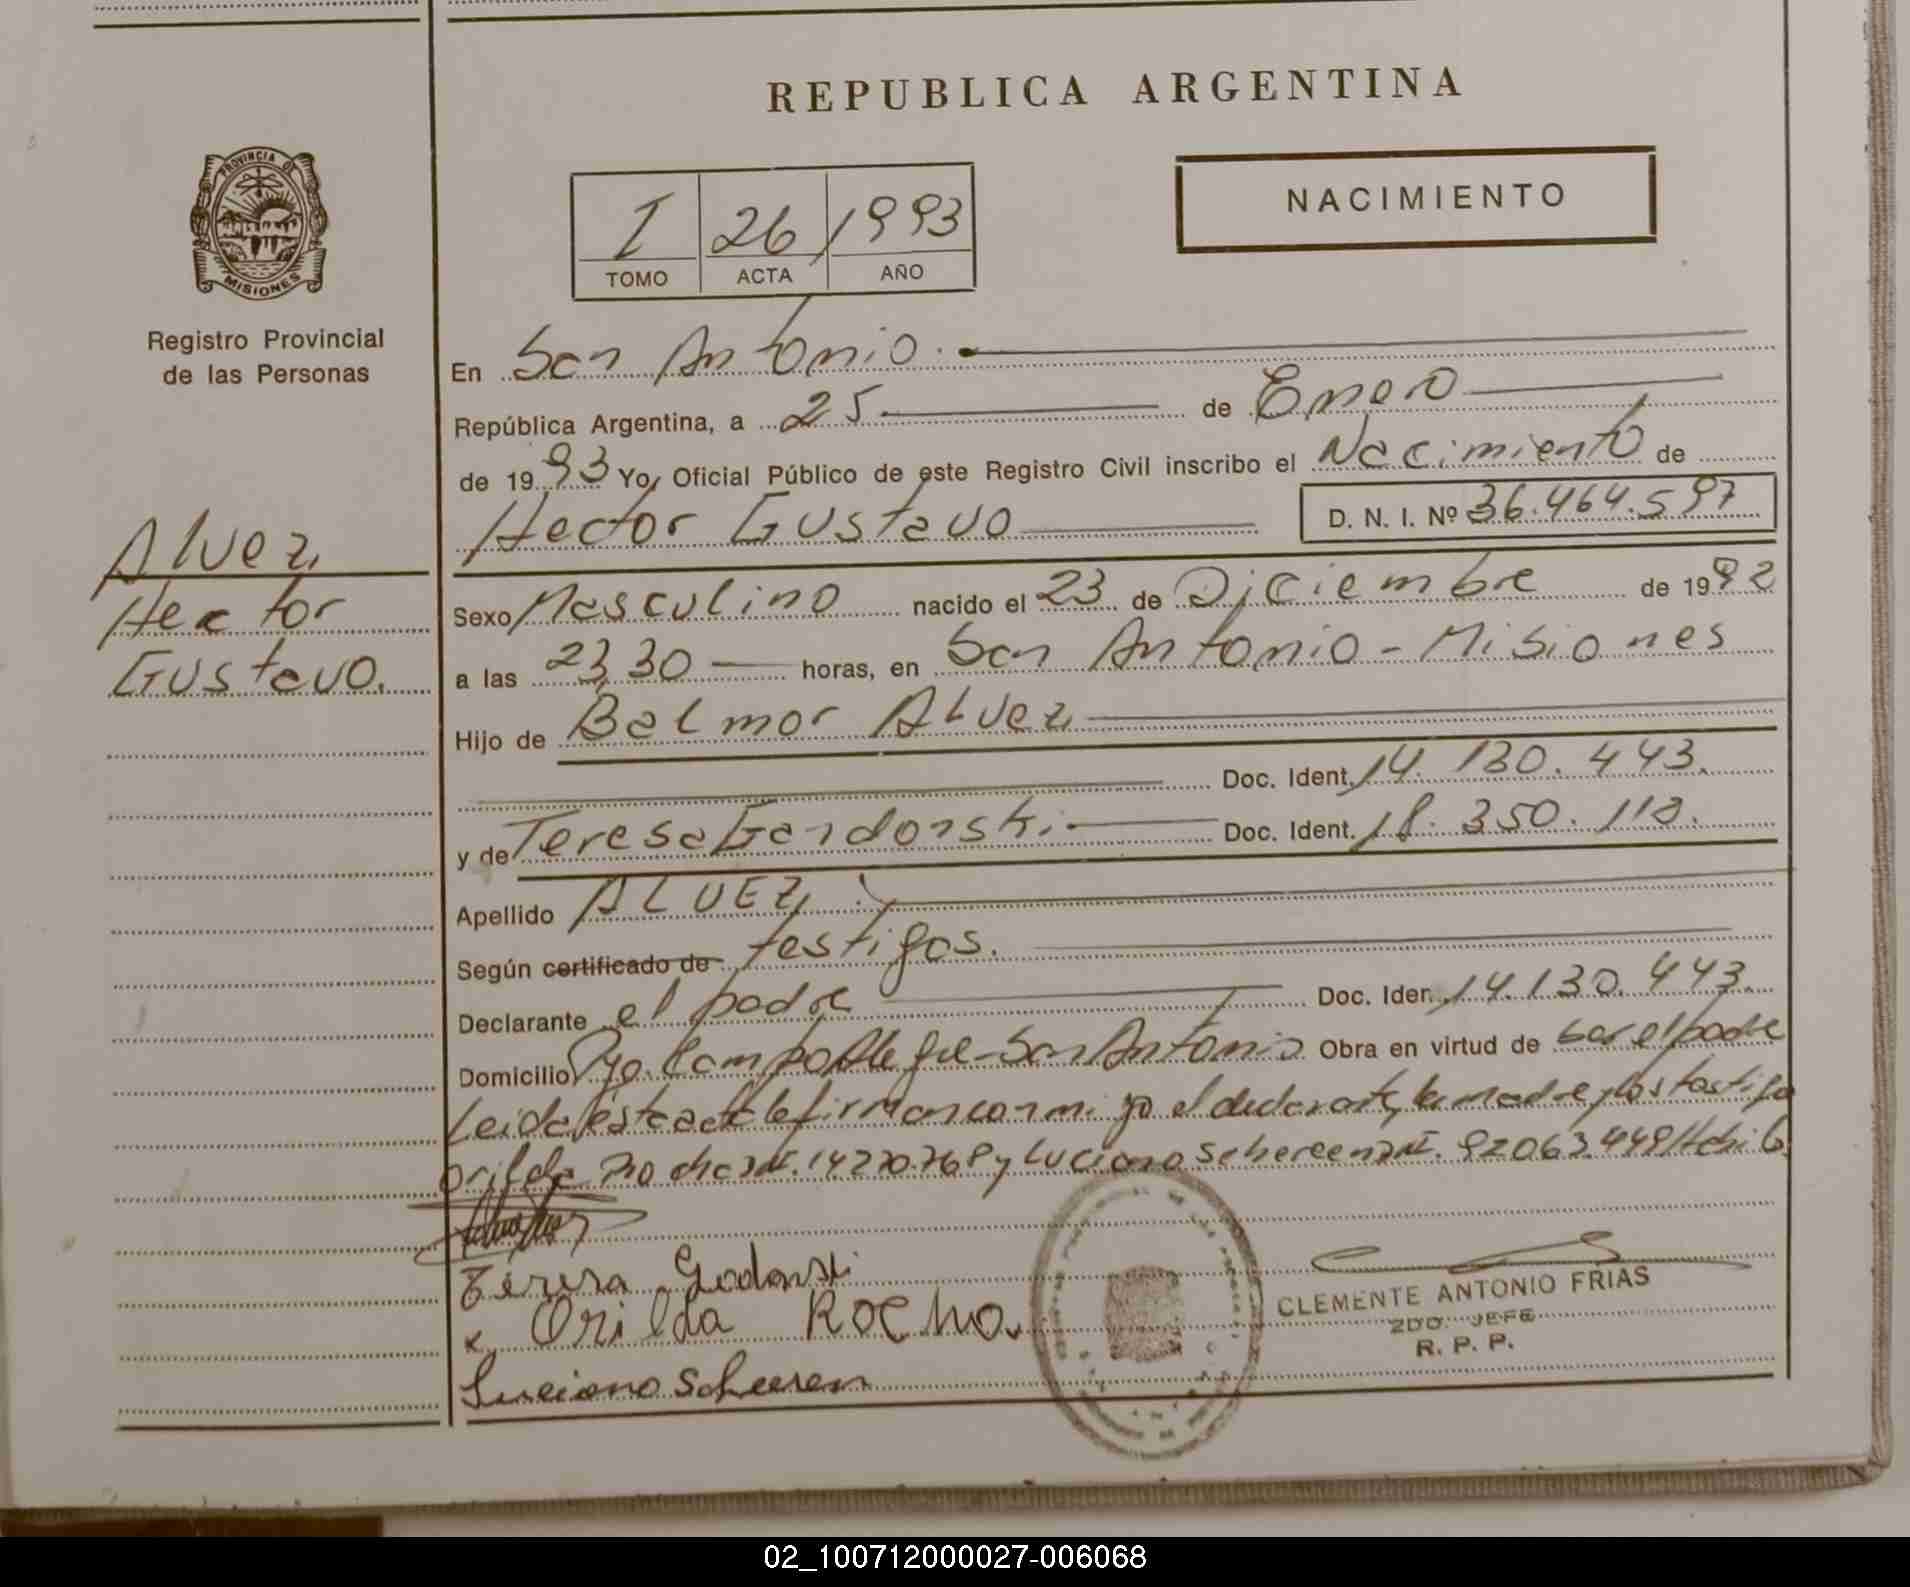 REPUBLICA ARGENTINA
NACIMIENTO
I 26 1993
TOMO ACTA AÑO
PROVINCIA DE
MISIONES
Registro Provincial
de las Personas
Alvez
Hector
Gustavo.
En San Antonio.
República Argentina, a 25 de Enero
de 1993 Yo, Oficial Público de este Registro Civil inscribo el Nacimiento de
Hector Gustavo D. N. I. Nº 36.464.597
Sexo Masculino nacido el 23 de Diciembre de 1992
a las 23,30 horas, en San Antonio - Misiones
Hijo de Belmor Alvez
Doc. Ident. 14.130.443.
y de Teresa Doc. Ident. 18.350.
Apellido ALVEZ
Según certificado de testigos.
Declarante el padre Doc. Iden. 14.130.443.
Domicilio San Antonio Obra en virtud de ser el padre
Leida esta acta la firman con migo el declarante, la madre y los testigo
Orilda y Luciano
Teresa
x Orilda Rocha
Luciano Scheeren
CLEMENTE ANTONIO FRIAS
2DO. JEFE
R. P. P.
02_100712000027-006068